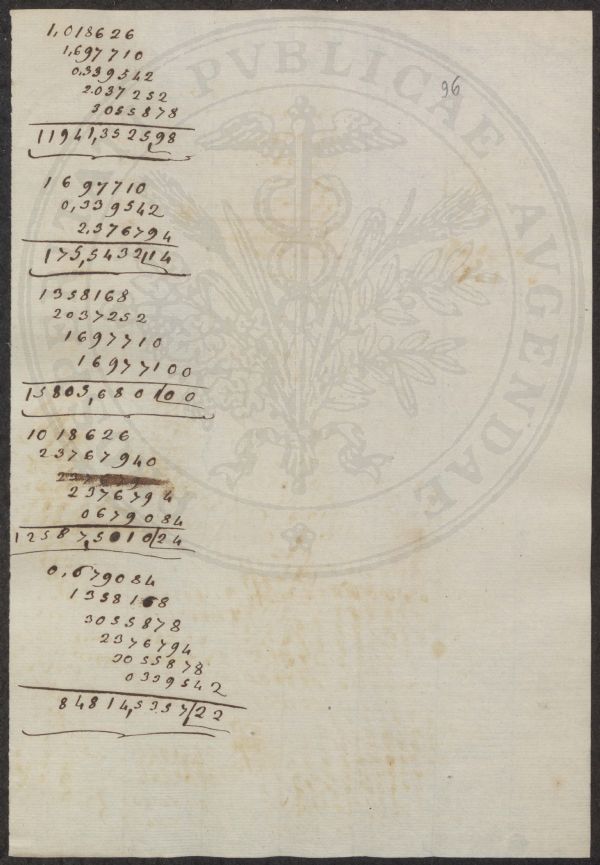 96
1,018626
1,697710
0,339542
2037252
3055878
11941,3525,98
1697710
0,339542
2,376794
175,5432|14
1358168
2037252
1697710
16977100
13803,680|00
1018626
23767940
2376794
0679084
12587,5010|24
0,679084
1358168
3055878
2376794
3055878
0339542
84814,5357|22
PVBLICAE
AVGENDAE